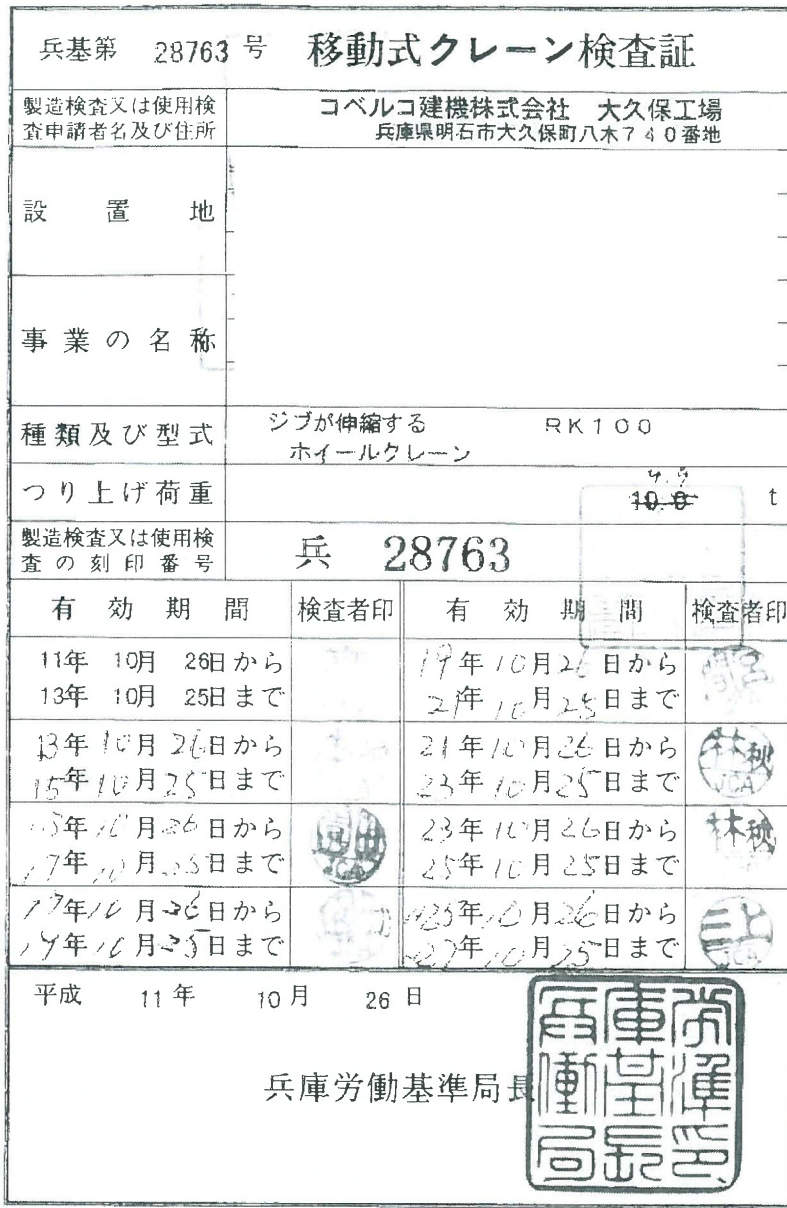 兵基第 28763 号 移動式クレーン検査証
製造検査又は使用検
査申請者名及び住所
コベルコ建機株式会社 大久保工場
兵庫県明石市大久保町八木740番地
設置地
事業の名称
種類及び型式
ジブが伸縮する RK100
ホイールクレーン
つり上げ荷重
4.9
10.0 t
製造検査又は使用検
査の刻印番号
兵 28763
有効期間 検査者印 有効期間 検査者印
11年 10月 26日から
13年 10月 25日まで
19年10月26日から
21年10月25日まで
13年10月26日から
15年10月25日まで
21年10月26日から
23年10月25日まで
林秋
JCA
15年10月26日から
17年10月25日まで
JCA
23年10月26日から
25年10月25日まで
林秋
17年10月26日から
19年10月25日まで
25年10月26日から
27年10月25日まで
三上
JCA
平成 11年 10月 26日
兵庫労働基準局長
兵庫労働基準局長印